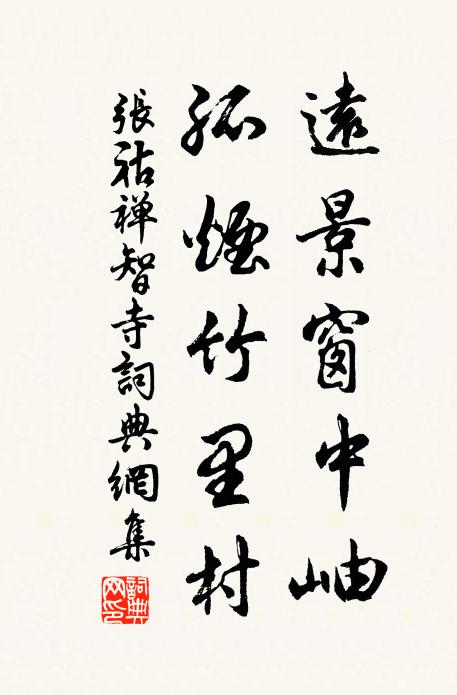 遠景窗中岫
孤煙竹里村
張祜禅智寺詞典網集
詞典
网印